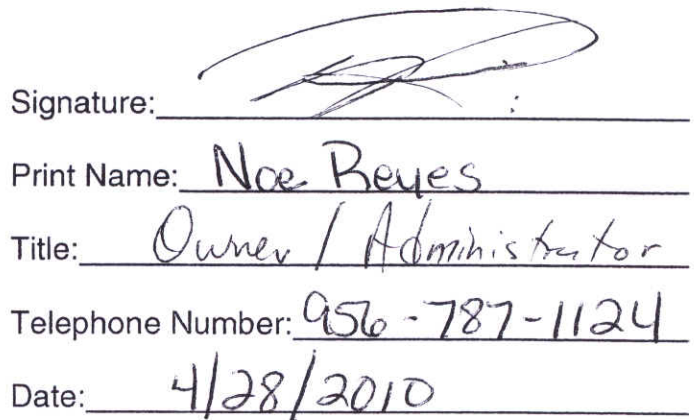 Signature:
Print Name: Noe Reyes
Title: Owner / Administrator
Telephone Number: 956-787-1124
Date: 4/28/2010